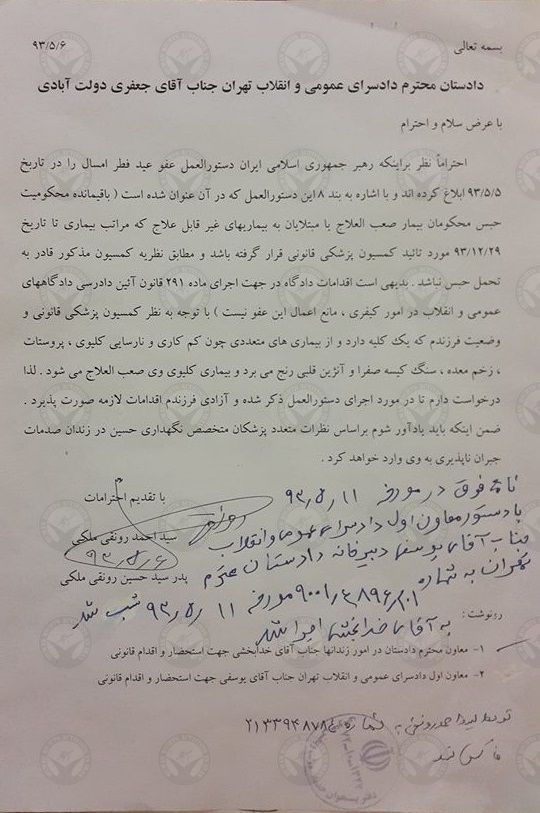 بسمه تعالی
۹۳/۵/۶
دادستان محترم دادسرای عمومی و انقلاب تهران جناب آقای جعفری دولت آبادی
با عرض سلام و احترام
احتراماً نظر براینکه رهبر جمهوری اسلامی ایران دستورالعمل عفو عید فطر امسال را در تاریخ
۹۳/۵/۵ ابلاغ کرده اند و با اشاره به بند ۸ این دستورالعمل که در آن عنوان شده است ( باقیمانده محکومیت
حبس محکومان بیمار صعب العلاج یا مبتلایان به بیماریهای غیر قابل علاج که مراتب بیماری تا تاریخ
۹۳/۱۲/۲۹ مورد تائید کمسیون پزشکی قانونی قرار گرفته باشد و مطابق نظریه کمسیون مذکور قادر به
تحمل حبس نباشد . بدیهی است اقدامات دادگاه در جهت اجرای ماده ۲۹۱ قانون آئین دادرسی دادگاههای
عمومی و انقلاب در امور کیفری ، مانع اعمال این عفو نیست ) با توجه به نظر کمسیون پزشکی قانونی و
وضعیت فرزندم که یک کلیه دارد و از بیماری های متعددی چون کم کاری و نارسایی کلیوی ، پروستات
، زخم معده ، سنگ کیسه صفرا و آنژین قلبی رنج می برد و بیماری کلیوی وی صعب العلاج می شود . لذا
درخواست دارم تا در مورد اجرای دستورالعمل ذکر شده و آزادی فرزندم اقدامات لازمه صورت پذیرد .
ضمن اینکه باید یادآور شوم براساس نظرات متعدد پزشکان متخصص نگهداری حسین در زندان صدمات
جبران ناپذیری به وی وارد خواهد کرد .
با تقدیم احترامات
سید احمد رونقی ملکی
۹۳/۵/۶
پدر سید حسین رونقی ملکی
نامه فوق در مورخه ۹۳/۵/۱۱
با دستور معاون اول دادسرای عمومی و انقلاب
جناب آقای یوسفی دبیرخانه دادستان محترم
تهران به شماره
مورخه ۹۳/۵/۱۱ ثبت شد
به آقای خدابخشی اجرا شد
رونوشت :
۱- معاون محترم دادستان در امور زندانها جناب آقای خدابخشی جهت استحضار و اقدام قانونی
۲- معاون اول دادسرای عمومی و انقلاب تهران جناب آقای یوسفی جهت استحضار و اقدام قانونی
توسط احمد رونقی به شماره ۲۱۳۳۹۴۸۷۸
فاکس شد